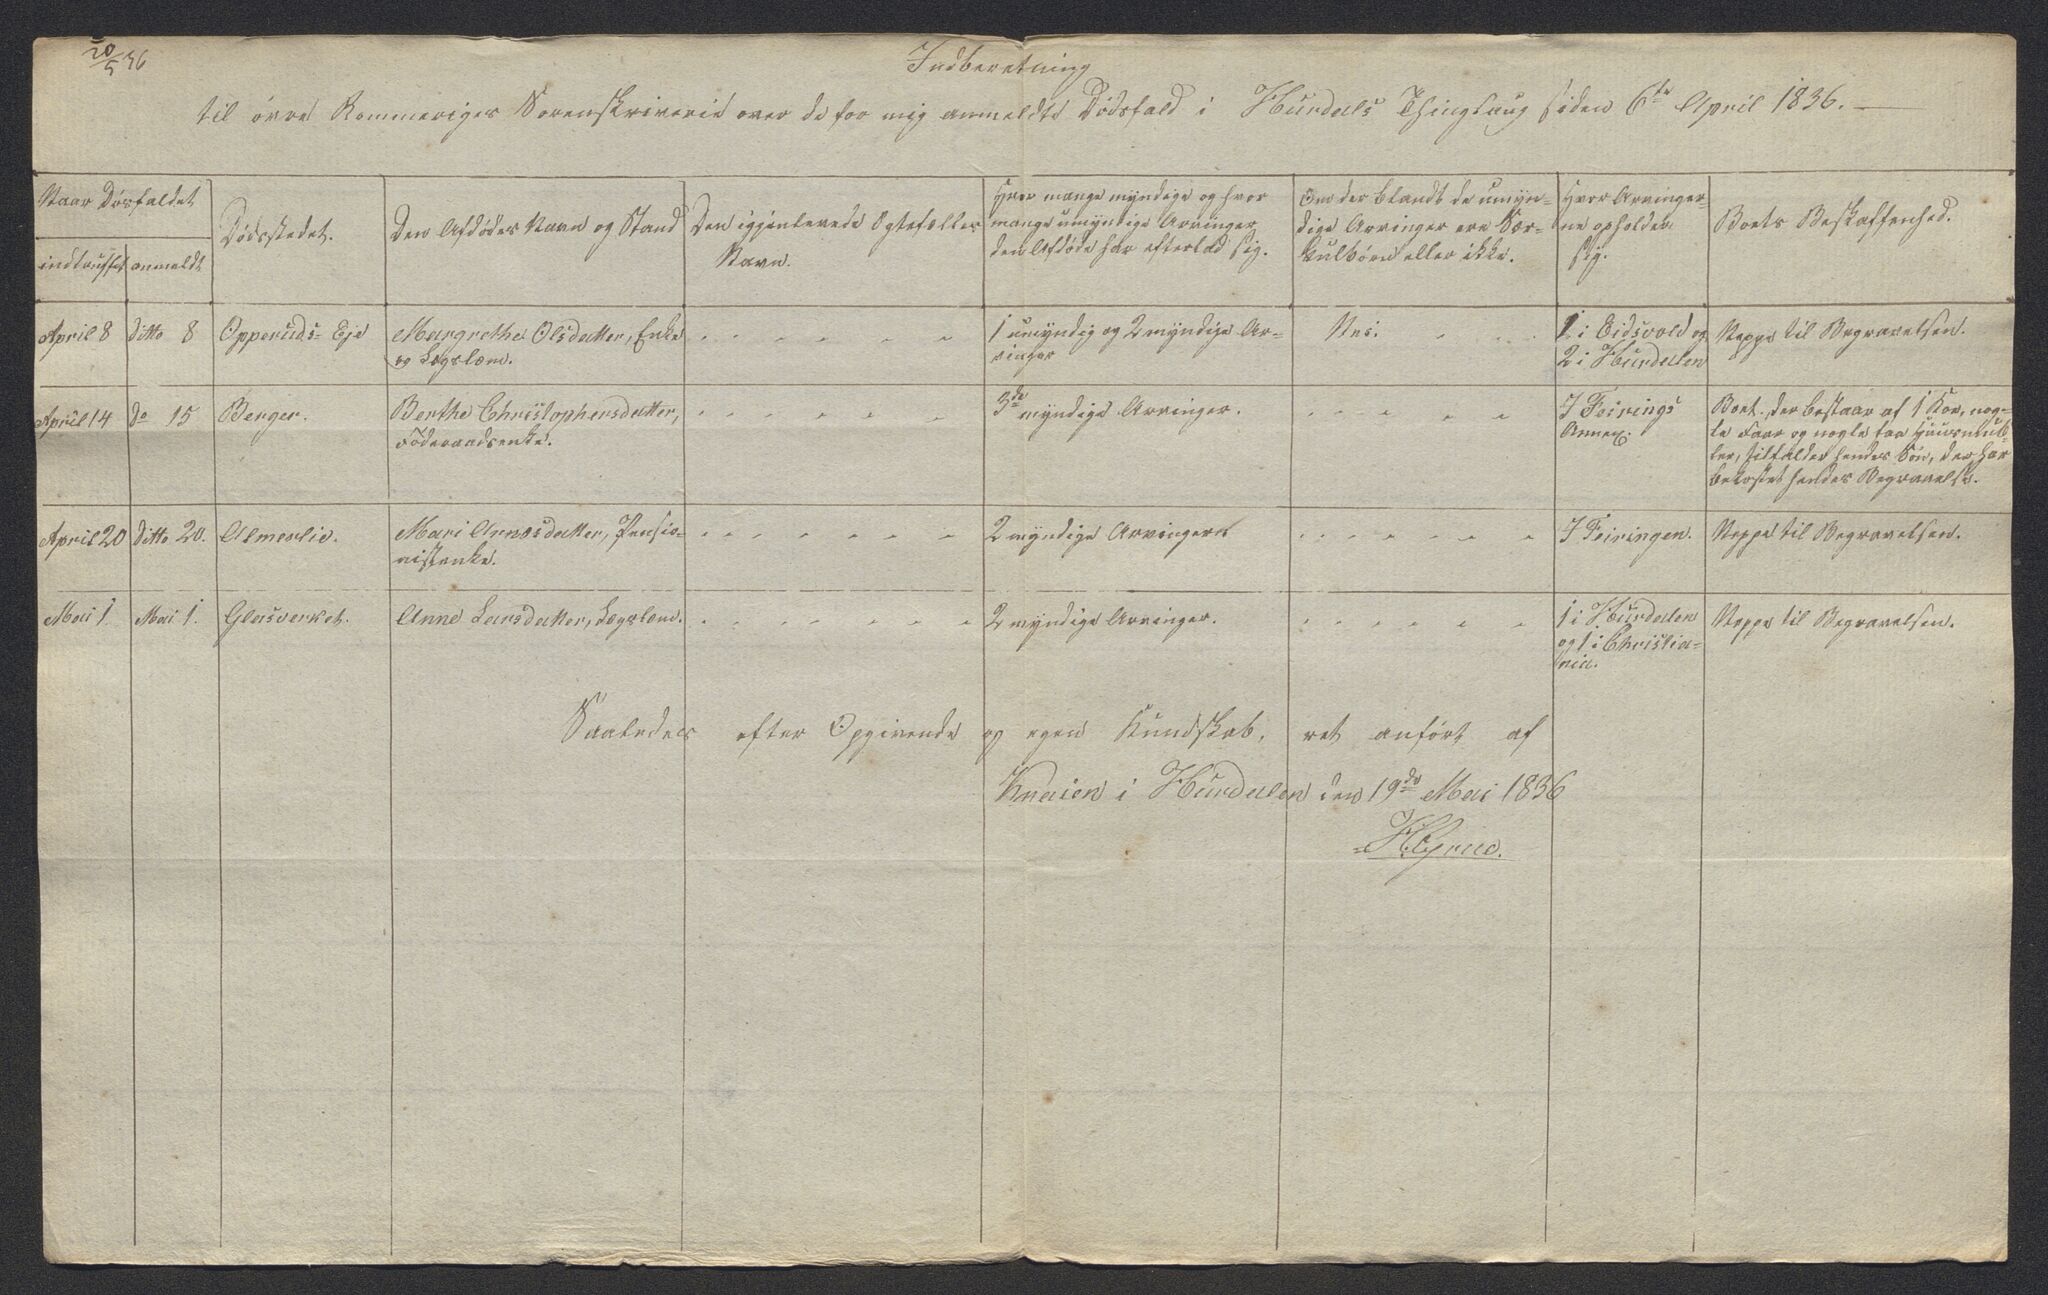 20/5 36
Indberetning
til øvre Rommeriges Sorenskriverie over de for mig anmeldte Dødsfald i Hurdals Thinglaug siden 6te April 1836.
Naar Dødsfaldet
indtruffet
anmeldt
Dødsstedet.
Den Afdødes Navn og Stand
Den igjenlevende Ægtefælles
Navn.
Hvor mange myndige og hvor
mange umyndige Arvinger
den Afdøde har efterlad sig.
Om der blandt de umyn-
dige Arvinger ere Sær-
kulbørn eller ikke.
Hvor Arvinger-
ne opholder
sig.
Boets Beskaffenhed.
April 8
ditto 8
Opperuds- Eje
Margrethe Olsdatter, Enke
og Lægslem.
1 umyndig og 2 myndige Ar-
vinger
Nei.
1 i Eidsvold og
2 i Hurdalen
Neppe til Begravelsen.
April 14
do 15
Berger.
Berthe Christophersdatter,
Føderaadsenke.
3de myndige Arvinger.
I Feirings
Annex.
Boet, der bestaar af 1 Koe, nog-
le Faar og nogle faa Huusmøb-
ler, tilfalder hendes Søn, der har
bekostet hendes Begravelse.
April 20
ditto 20.
Almerlie.
Mari Arnesdatter, Pensio-
nistenke.
2 myndige Arvinger
I Feiringen.
Neppe til Begravelsen.
Mai 1
Mai 1.
Glasverket.
Anne Larsdatter, Lægslem.
2 myndige Arvinger.
1 i Hurdalen
og 1 i Christia-
nia.
Neppe til Begravelsen.
Saaledes efter Opgivende og egen Kundskab, ret anført af
Knaien i Hurdalen den 19de Mai 1836